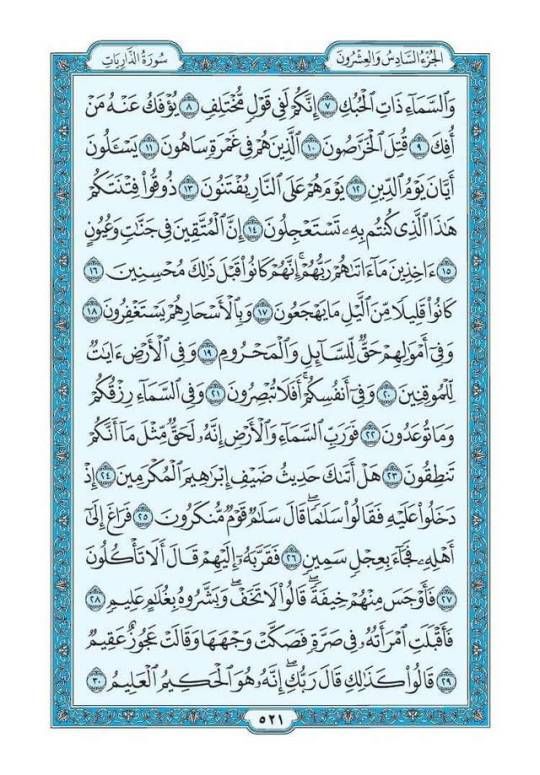 الجُزْءُ السَّادِسُ وَالعِشْرُونَ
سُورَةُ الذَّارِيَاتِ
وَالسَّمَاءِ ذَاتِ الْحُبُكِ ٧ إِنَّكُمْ لَفِي قَوْلٍ مُّخْتَلِفٍ ٨ يُؤْفَكُ عَنْهُ مَنْ
أُفِكَ ٩ قُتِلَ الْخَرَّٰصُونَ ١٠ الَّذِينَ هُمْ فِي غَمْرَةٍ سَاهُونَ ١١ يَسْـَٔلُونَ
أَيَّانَ يَوْمُ الدِّينِ ١٢ يَوْمَ هُمْ عَلَى النَّارِ يُفْتَنُونَ ١٣ ذُوقُوا۟ فِتْنَتَكُمْ
هَٰذَا الَّذِي كُنتُم بِهِۦ تَسْتَعْجِلُونَ ١٤ إِنَّ الْمُتَّقِينَ فِي جَنَّٰتٍ وَعُيُونٍ
١٥ ءَاخِذِينَ مَا ءَاتَىٰهُمْ رَبُّهُمْ ۚ إِنَّهُمْ كَانُوا۟ قَبْلَ ذَٰلِكَ مُحْسِنِينَ ١٦
كَانُوا۟ قَلِيلًا مِّنَ الَّيْلِ مَا يَهْجَعُونَ ١٧ وَبِالْأَسْحَارِ هُمْ يَسْتَغْفِرُونَ ١٨
وَفِي أَمْوَٰلِهِمْ حَقٌّ لِّلسَّائِلِ وَالْمَحْرُومِ ١٩ وَفِي الْأَرْضِ ءَايَٰتٌ
لِّلْمُوقِنِينَ ٢٠ وَفِي أَنفُسِكُمْ ۚ أَفَلَا تُبْصِرُونَ ٢١ وَفِي السَّمَاءِ رِزْقُكُمْ
وَمَا تُوعَدُونَ ٢٢ فَوَرَبِّ السَّمَاءِ وَالْأَرْضِ إِنَّهُۥ لَحَقٌّ مِّثْلَ مَا أَنَّكُمْ
تَنطِقُونَ ٢٣ هَلْ أَتَىٰكَ حَدِيثُ ضَيْفِ إِبْرَٰهِيمَ الْمُكْرَمِينَ ٢٤ إِذْ
دَخَلُوا۟ عَلَيْهِ فَقَالُوا۟ سَلَٰمًا ۖ قَالَ سَلَٰمٌ قَوْمٌ مُّنكَرُونَ ٢٥ فَرَاغَ إِلَىٰ
أَهْلِهِۦ فَجَاءَ بِعِجْلٍ سَمِينٍ ٢٦ فَقَرَّبَهُۥ إِلَيْهِمْ قَالَ أَلَا تَأْكُلُونَ
٢٧ فَأَوْجَسَ مِنْهُمْ خِيفَةً ۖ قَالُوا۟ لَا تَخَفْ ۖ وَبَشَّرُوهُ بِغُلَٰمٍ عَلِيمٍ ٢٨
فَأَقْبَلَتِ امْرَأَتُهُۥ فِي صَرَّةٍ فَصَكَّتْ وَجْهَهَا وَقَالَتْ عَجُوزٌ عَقِيمٌ
٢٩ قَالُوا۟ كَذَٰلِكِ قَالَ رَبُّكِ ۖ إِنَّهُۥ هُوَ الْحَكِيمُ الْعَلِيمُ ٣٠
٥٢١